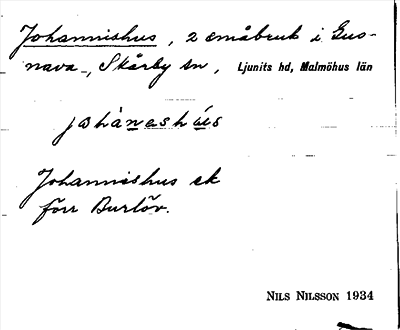 Johannishus, 2 småbruk i Gus-
nava-, Skårby sn, Ljunits hd, Malmöhus län
johàneshúès
Johannishus ek
förr Burlöv.
NILS NILSSON 1934